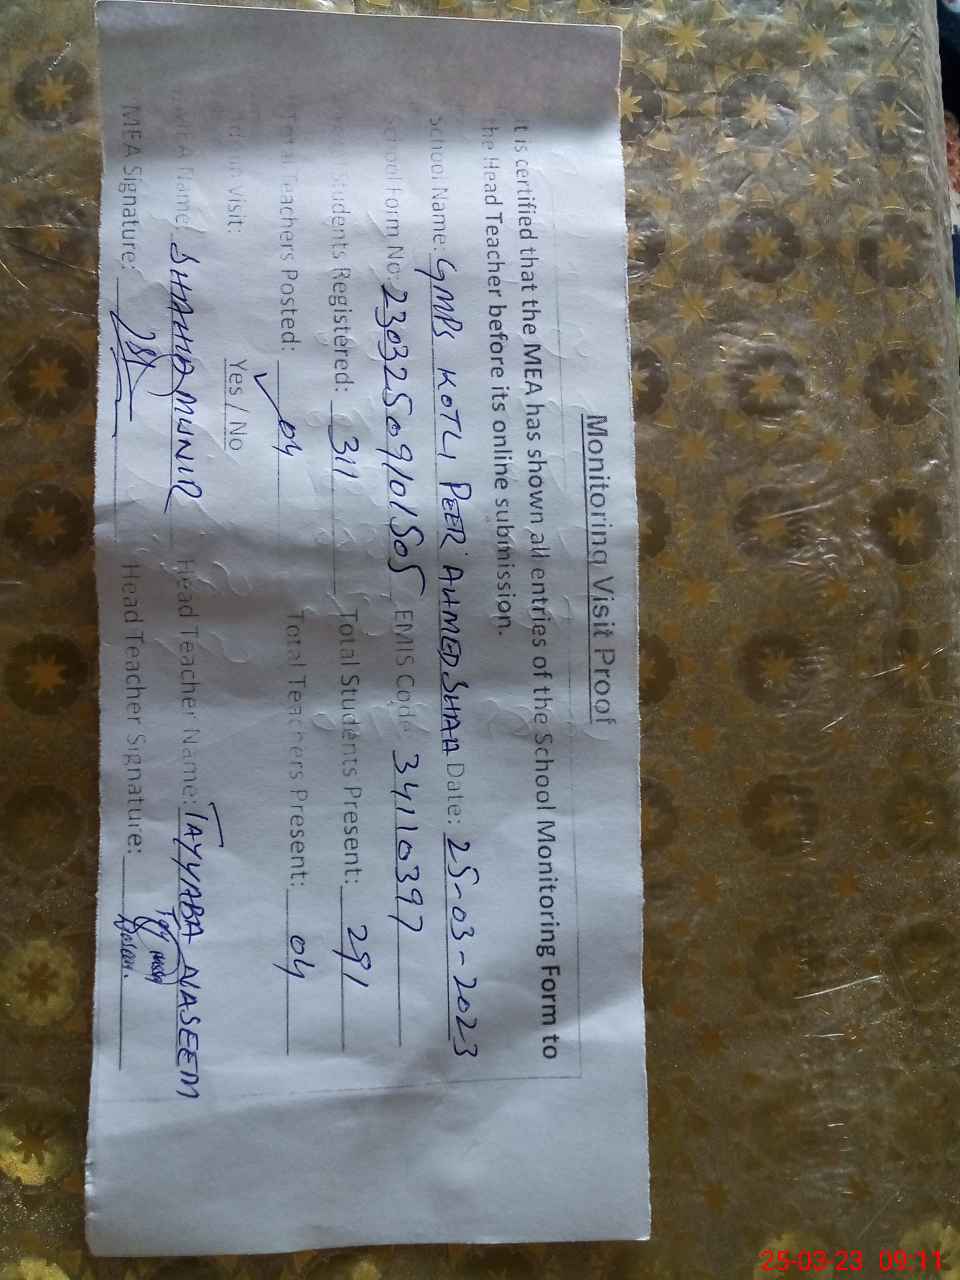 Monitoring Visit Proof
It is certified that the MEA has shown all entries of the School Monitoring Form to
the Head Teacher before its online submission.
School Name: GMPS KOTLI PEER AHMED SHAH Date: 25-03-2023
School Form No: 23032509101505 EMIS Code 34110397
Students Registered: 311 Total Students Present: 291
Total Teachers Posted: 04 Total Teachers Present: 04
Visit: Yes / No
Name: SHAHID MUNIR Head Teacher Name: TAYYABA NASEEM
MEA Signature: Head Teacher Signature:
25-03-23 09:11